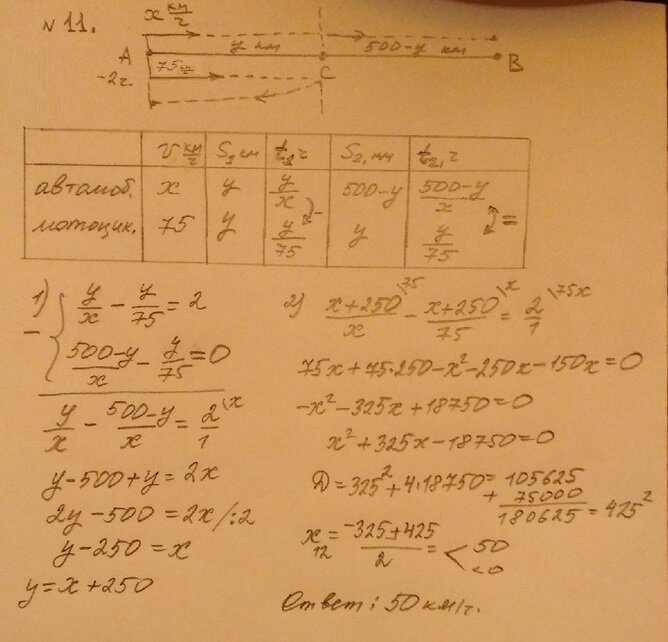 № 11.
x км/ч
A y км C 500-y км B
-2ч 75
v км/ч S₁ км t₁, ч S₂, км t₂, ч
автомоб. x y y/x 500-y (500-y)/x
мотоцик. 75 y y/75 y y/75 =
1) y/x - y/75 = 2
- (500-y)/x - y/75 = 0
y/x - (500-y)/x = 2/1 \x
y-500+y=2x
2y-500=2x/:2
y-250=x
y=x+250
2) (x+250)/x \75 - (x+250)/75 \x = 2/1 \75x
75x+75·250-x²-250x-150x=0
-x²-325x+18750=0
x²+325x-18750=0
D=325²+4·18750= 105625
+ 75000
180625=425²
x₁₂ = (-325±425)/2 = < 50
<0
Ответ: 50 км/ч.